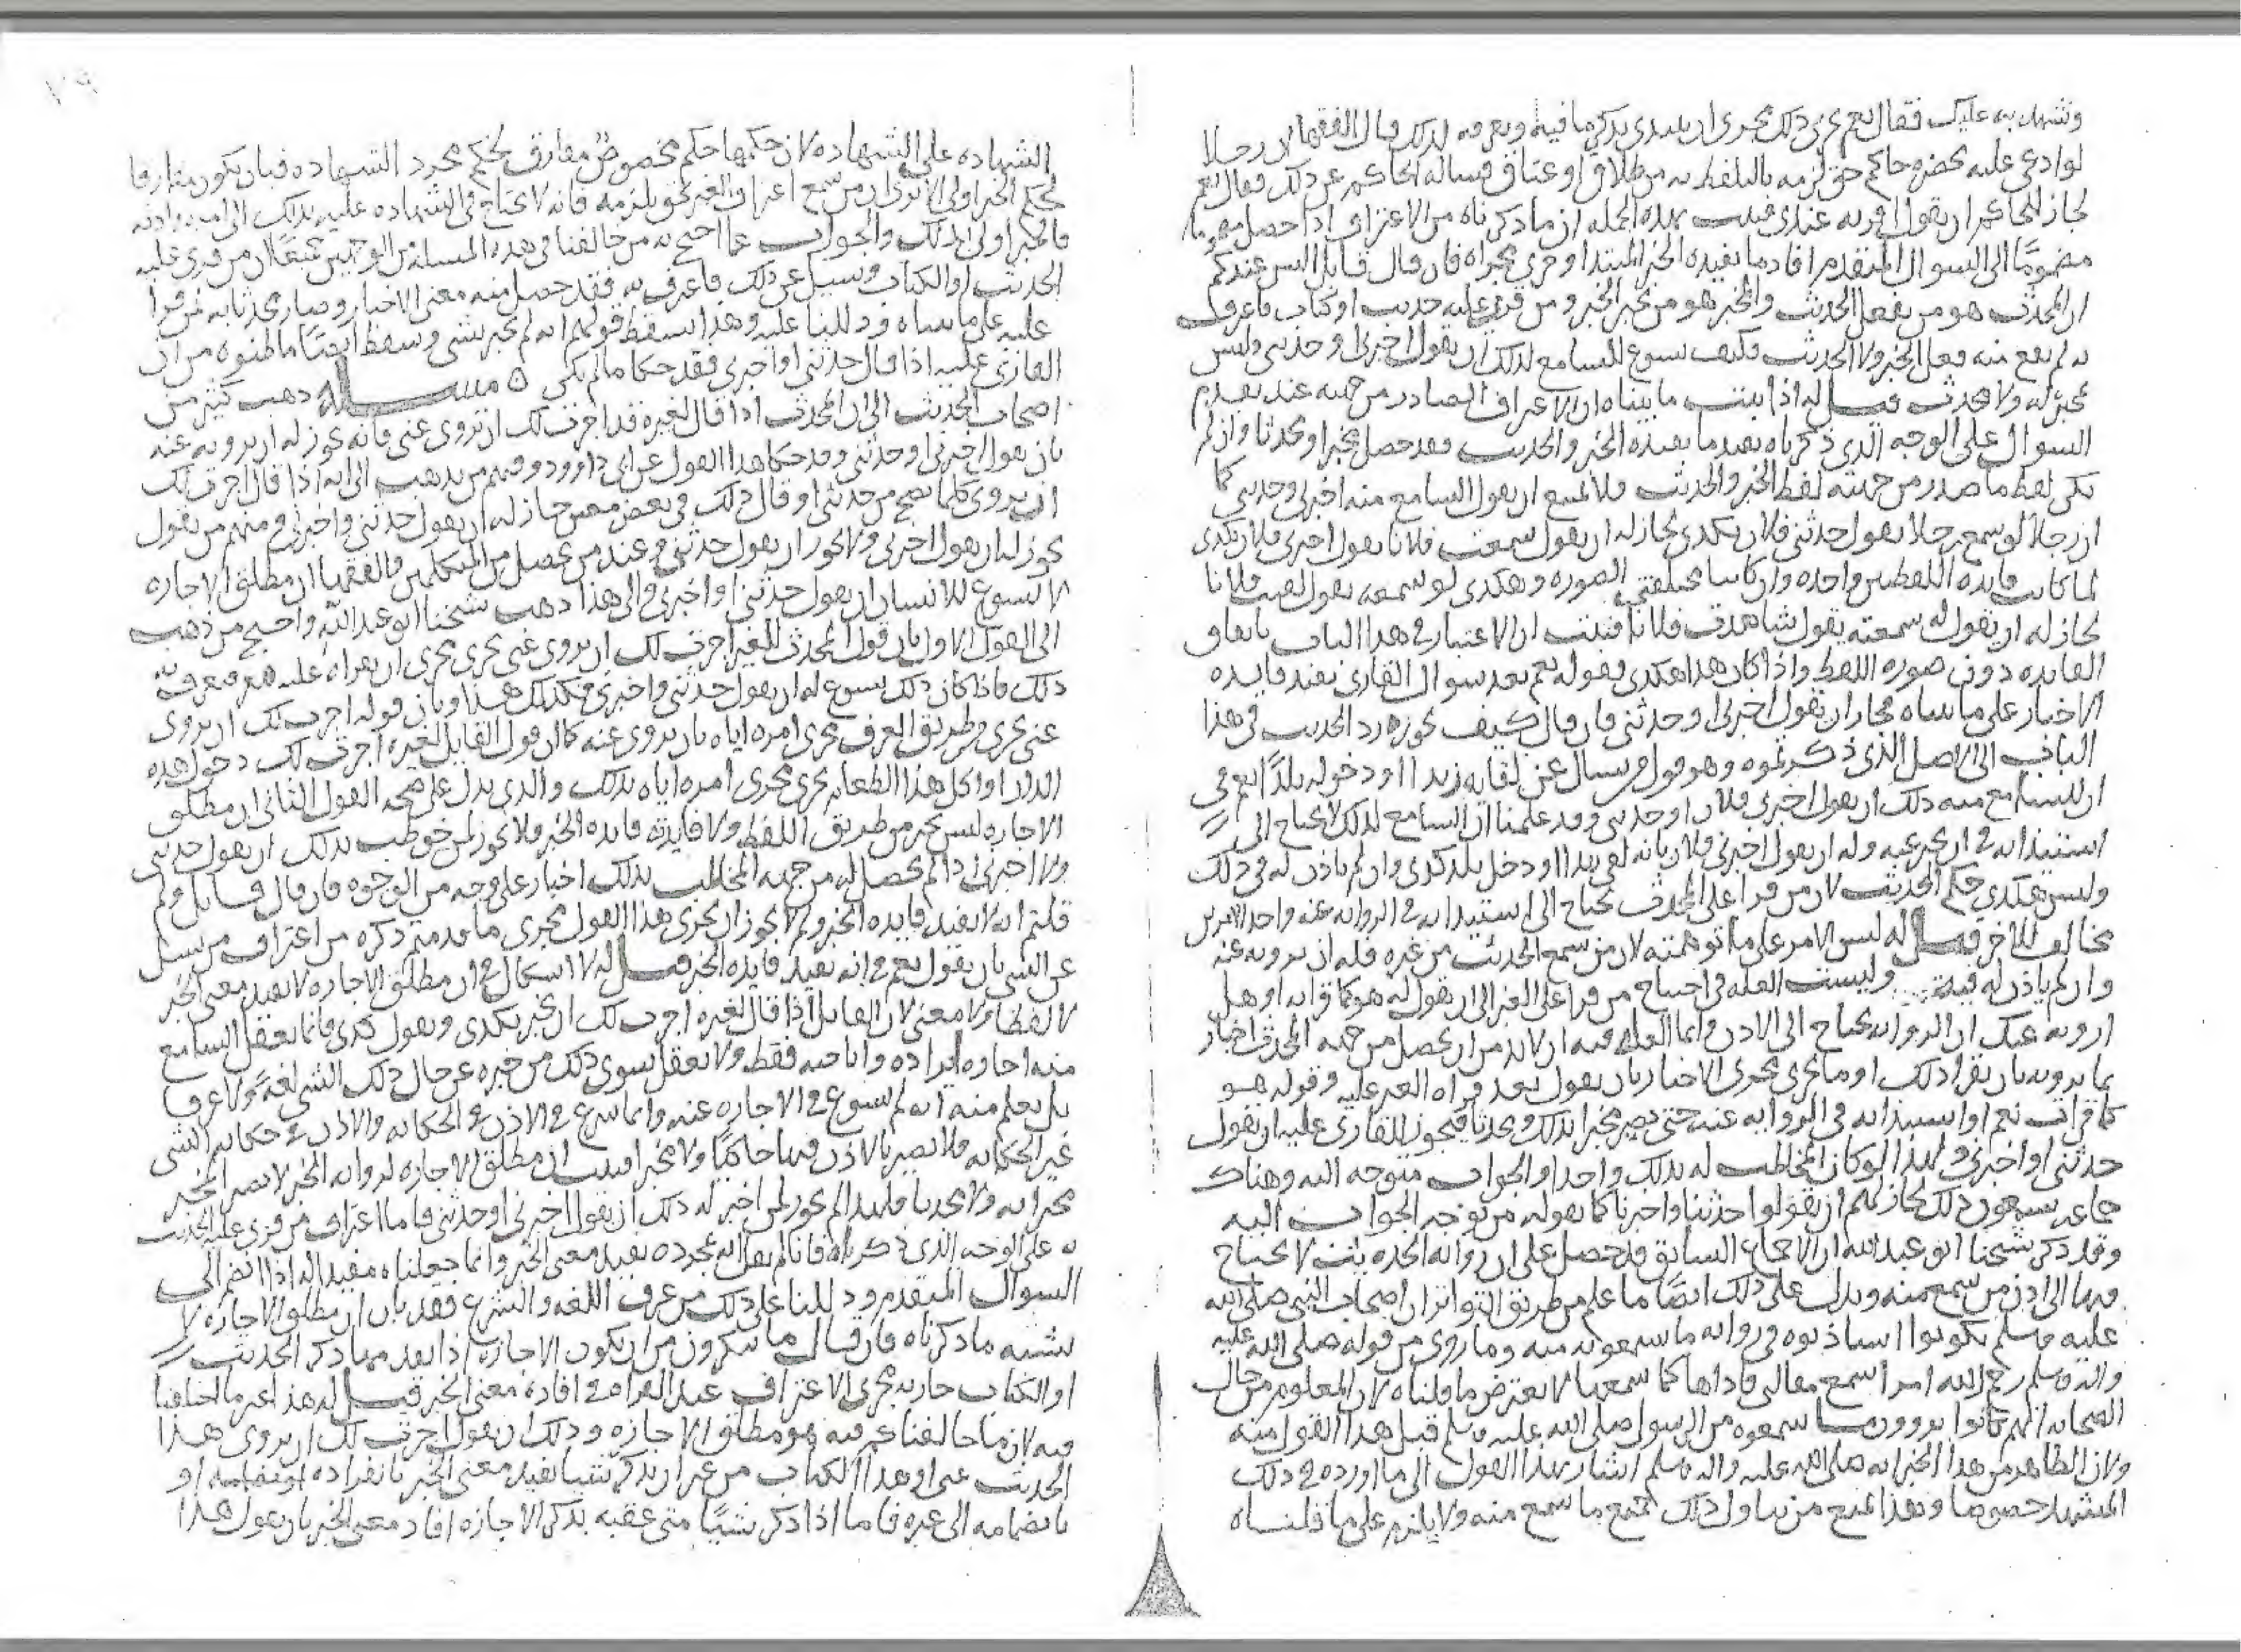 ونشهد به عليك فقال نعم جرى ذلك مجرى ان يبتدي بذكر ما فيه ويعرفه لذلك قال الفقهاء ان رجلا
لو ادعى عليه بحضرة حاكم حق لزمه باللفظ به من طلاق او عتاق فساله الحاكم عن ذلك فقال نعم
لجاز للحاكم ان يقول اقر به عندي فثبت بهذه الجمله ان ما ذكرناه من الاعتراف اذا حصل
مضموما الى السوال المتقدم افاد ما يفيده الخبر المبتدا وجرى مجراه فان قال قايل اليس عندكم
ان المحدث هو من يفعل الحديث والمخبر هو من يخبر الخبر ومن قرى عليه حديث او كتاب فاعترف
به لم يقع منه فعل الخبر ولا الحديث فكيف يسوغ للسامع لذلك ان يقول اخبرني وحدثني وليس
بمخبر له ولا محدث قيل له اذا ثبت ما بيناه ان الاعتراف الصادر من جهته عند تقدم
السوال على الوجه الذي ذكرناه يفيد ما يفيده الخبر والحديث فقد حصل مخبرا ومحدثا وان لم
يكن لفظ ما صدر من جهته لفظ الخبر والحديث فلا يمتنع ان يقول السامع منه اخبرني وحدثني كما
ان رجلا لو سمع رجلا يقول حدثني فلان بكذى لجاز له ان يقول سمعت فلانا يقول اخبرني فلان بكذى
لما كانت فايدة اللفظين واحده وان كانتا مختلفتي الصوره وهكذى لو سمعه يقول لقيت فلانا
لجاز له ان يقول سمعته يقول شاهدت فلانا فثبت ان الاعتبار في هذا الباب باتفاق
الفايده دون صوره اللفظ واذا كان هذا هكذى فقوله نعم بعد سوال القارى يفيد فايده
الاخبار على ما بيناه فجاز ان يقول اخبرني او حدثني فان قال كيف يجوز رد الحديث في هذا
الباب الى الاصل الذي ذكرتموه وهو قول من يسال عن لقايه زيدا او دخوله بلدا نعم في
ان للسامع منه ذلك ان يقول اخبرني فلان او حدثني وقد علمنا ان السامع لذلك لا يحتاج الى
استيذانه في ان يخبر عنه وله ان يقول اخبرني فلان بانه لقي زيدا او دخل بلد كذى وان لم ياذن له في ذلك
وليس هكذى حكم الحديث لان من قرا على المحدث يحتاج الى استيذانه في الروايه عنه واحد الامرين
مخالف للاخر قيل له ليس الامر على ما توهمته لان من سمع الحديث من غيره فله ان يرويه عنه
وان لم ياذن له فيه وليست العله في احتياج من قرا على الغير الى ان يقول له هو كما قراته او هل
ارويه عنك ان الروايه تحتاج الى الاذن وانما العله فيه ان لا بد من ان يحصل من جهه المحدث اخبار
بما يرويه بان يقرا ذلك او ما يجري مجرى الاخبار بان يقول بعد قراه الغير عليه وقوله هو
كما قرات نعم او استيذانه في الروايه عنه حتى يصير مخبرا بذلك ومحدثا فيجوز للقارى عليه ان يقول
حدثني او اخبرني ولهذا لو كان المخاطب له بذلك واحدا والجواب متوجه اليه وهناك
جماعه يسمعون ذلك لجاز لهم ان يقولوا حدثنا واخبرنا كما يقوله من توجه الجواب اليه
وقد ذكر شيخنا ابو عبد الله ان الاجماع السابق قد حصل على ان روايه الحديث لا يحتاج
فيها الى اذن من سمع منه ويدل على ذلك ايضا ما علم من طريق التواتر ان اصحاب النبي صلى الله
عليه وسلم لم يكونوا استاذنوه في روايه ما سمعونه منه وما روي من قوله صلى الله عليه
واله وسلم رحم الله امرا سمع مقالتي فاداها كما سمعها لا يعترض ما قلناه لان المعلوم من حال
الصحابه انهم كانوا يروون ما سمعوه من الرسول صلى الله عليه وسلم قبل هذا القول منه
ولان الظاهر من هذا الخبر انه صلى الله عليه واله وسلم اشار بهذا القول الى ما اورده في ذلك
المشهد خصوصا وبعد المنع من تناول ذلك جميع ما سمع منه ولا يلزم على ما قلناه
٧٩
الشهاده على الشهاده لان حكمها حكم مخصوص مفارق لحكم مجرد الشهاده فبان يكون مفارقا
لحكم الخبر اولى الا ترى ان من سمع اعتراف الغير بحق يلزمه فانه لا يحتاج في الشهاده عليه بذلك الى امره واذنه
فالمخبر اولى بذلك والجواب عما احتج به من خالفنا في هذه المسله من الوجهين جميعا ان من قرى عليه
الحديث او الكتاب وسيل عن ذلك فاعترف به فقد حصل منه معنى الاخبار وصار محدثا به لمن قرا
عليه على ما بيناه ودللنا عليه وهذا يسقط قولهم انه لم يخبر بشي وسقط ايضا ما ظنوه من ان
القارى عليه اذا قال حدثني او اخبرني فقد حكا ما لم يكن ٥ مسله ذهب كثير من
اصحاب الحديث الى ان المحدث اذا قال لغيره قد اجزت لك ان تروي عني فانه يجوز له ان يرويه عنه
بان يقول اخبرني او حدثني وقد حكا هذا القول عن ابي داوود ومنهم من يذهب الى انه اذا قال اجزت لك
ان تروي كلما يصح من حديثي او قال ذلك في بعض معين جاز له ان يقول حدثني واخبرني ومنهم من يقول
يجوز له ان يقول اخبرني ولا يجوز ان يقول حدثني وعند من يحصل من المتكلمين والفقها ان مطلق الاجازه
لا يسوغ للانسان ان يقول حدثني او اخبرني والى هذا ذهب شيخنا ابو عبد الله واحتج من ذهب
الى القول الاول بان قول المحدث للغير اجزت لك ان تروي عني يجري مجرى ان يقراه عليه هو فيعرف به
ذلك فاذا كان ذلك يسوغ له ان يقول حدثني واخبرني فكذلك هذا وبان قوله اجزت لك ان تروي
عني يجري من طريق العرف مجرى امره اياه بان يروي عنه كما ان قول القايل لغيره اجزت لك دخول هذه
الدار او اكل هذا الطعام يجري مجرى امره اياه بذلك والذي يدل على صحه القول الثاني ان مطلق
الاجازه ليس بخبر من طريق اللفظ ولا فايدته فايده الخبر فلا يجوز لمن خوطب بذلك ان يقول حدثني
ولا اخبرني اذا لم يحصل له من جهه المخاطب بذلك اخبار على وجه من الوجوه فان قال قايل ولم
قلتم انه لا يفيد فايده الخبر ولم لا يجوز ان يجري هذا القول مجرى ما قدمتم ذكره من اعتراف من سيل
عن الشي بان يقول نعم في انه يفيد فايده الخبر قيل له لا اشكال في ان مطلق الاجازه لا يفيد معنى الخبر
لا لفظا ولا معنى لان القايل اذا قال لغيره اجزت لك ان تخبر بكذى وتقول كذى فانما يعقل السامع
منه اجازه ايراده واباحته فقط ولا يعقل سوى ذلك من خبره عن حال ذلك الشي لغه ولا عرفا
بل يعلم منه انه لم يسوغ في الاجازه عنه وانما شرع في الاذن في الحكايه والاذن في حكايه الشي
غير الحكايه فلا يصير بالاذن فيها حاكيا ولا مخبرا فثبت ان مطلق الاجازه لروايه الخبر لا يصير المخبر
مخبرا به ولا محدثا فلهذا لم يجز لمن اخبر له ذلك ان يقول اخبرني او حدثني فاما اعتراف من قرى عليه الحديث
به على الوجه الذي ذكرناه فانا لم نقل انه بمجرده يفيد معنى الخبر وانما جعلناه مفيدا له اذا انضم الى
السوال المتقدم ودللنا على ذلك من عرف اللغه والشرع فقد بان ان مطلق الاجازه لا
يشبه ما ذكرناه فان قال ما تنكرون من ان يكون الاجازه اذا تعد بها ذكر الحديث
او الكتاب جاريه مجرى الاعتراف عند القراه في افاده معنى الخبر قيل له هذا غير ما اختلفنا
فيه لان ما خالفنا غيره فيه هو مطلق الاجازه وذلك ان يقول اجزت لك ان تروي هذا
الحديث عني او هذا الكتاب من غير ان يذكر شيا يفيد معنى الخبر بانفراده او
بانضمامه الى غيره فاما اذا ذكر شيئا متى عقبه بذكر الاجازه افاد معنى الخبر بان يقول هذا